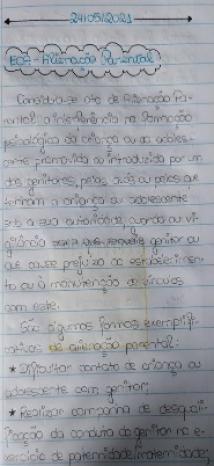 24/05/2021
ECA - Alienação Parental
Considera-se ato de Alienação Pa-
rental a interferência na formação
psicológica da criança ou do adoles-
cente, promovida ou induzida por um
dos genitores, pelos avós ou pelos que
tenham a criança ou adolescente
sob a sua autoridade, guarda ou vi-
gilância para que repudie genitor ou
que cause prejuízo ao estabelecimen-
to ou à manutenção de vínculos
com este.
São algumas formas exemplifi-
cativas de alienação parental:
* Dificultar contato de criança ou
adolescente com genitor;
* Realizar campanha de desquali-
ficação da conduta do genitor no e-
xercício da paternidade/maternidade;